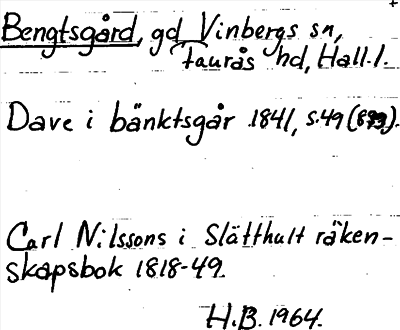 Bengtsgård, gd Vinbergs sn,
Faurås hd, Hall. l.
Dave i bänktsgår 1841, s.49
Carl Nilssons i Slätthult räken-
skapsbok 1818-49.
H.B. 1964.